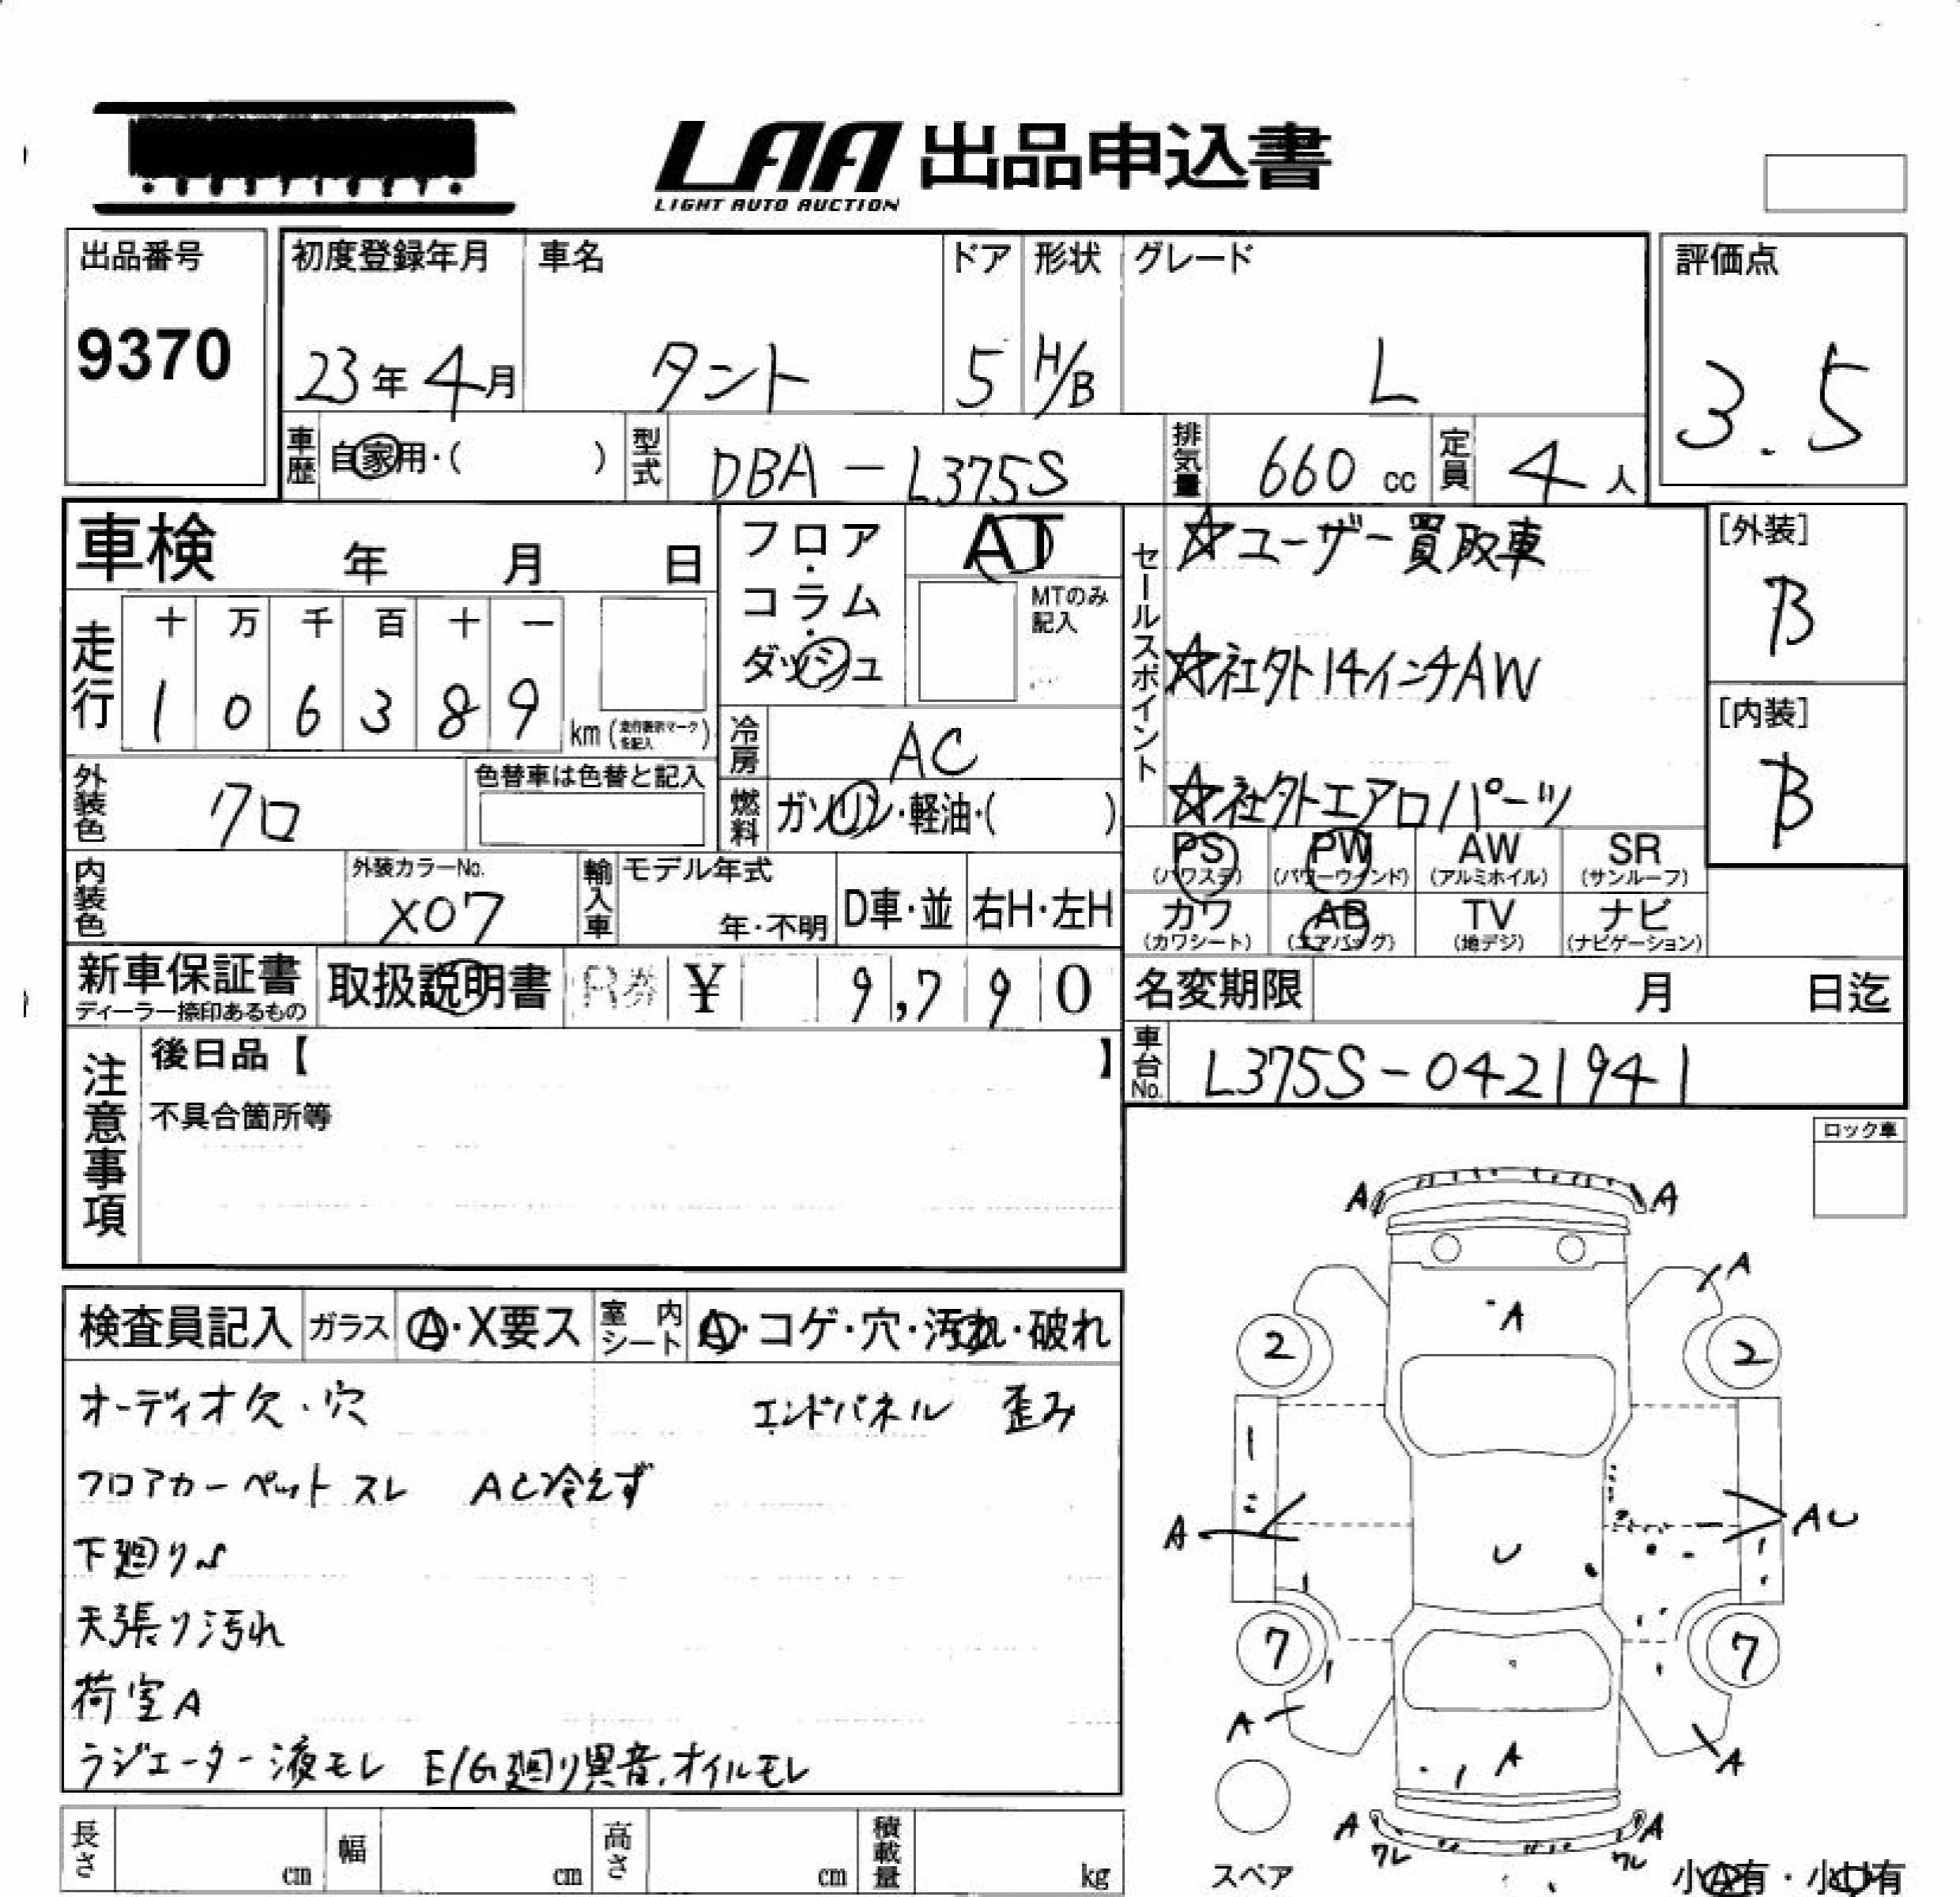 LAA 出品申込書
LIGHT AUTO AUCTION
出品番号
9370
初度登録年月 車名 ドア 形状 グレード
23年4月 タント 5 H/B L
評価点
3.5
車歴 自家用・( ) 型式 DBA-L375S 排気量 660cc 定員 4人
車検 年 月 日
走行 十 万 千 百 十 一
1 0 6 3 8 9 km (走行表示マークを記入)
フロア・コラム・ダッシュ
AT
MTのみ記入
冷房 AC
燃料 ガソリン・軽油・( )
セールスポイント
☆ユーザー買取車
☆社外14インチAW
☆社外エアロパーツ
[外装]
B
[内装]
B
外装色 クロ 色替車は色替と記入
内装色 外装カラーNo. X07
輸入車 モデル年式 年・不明 D車・並 右H・左H
PS (パワステ) PW (パワーウインド) AW (アルミホイル) SR (サンルーフ)
カワ (カワシート) AB (エアバッグ) TV (地デジ) ナビ (ナビゲーション)
新車保証書 ディーラー捺印あるもの
取扱説明書 R券 ¥ 9,790
名変期限 月 日迄
車台No. L375S-0421941
注意事項
後日品【 】
不具合箇所等
ロック車
検査員記入 ガラス A・X要ス 室内シート A・コゲ・穴・汚れ・破れ
オーディオ欠・穴 エンドパネル 歪み
フロアカーペットスレ AC冷えず
下廻りS
天張り汚れ
荷室A
ラジエーター液モレ E/G廻り異音、オイルモレ
A A
A
A
2 2
A AU
U
7 7
A A A
A A
ワレ ワレ
スペア
小A有・小U有
長さ cm 幅 cm 高さ cm 積載量 kg